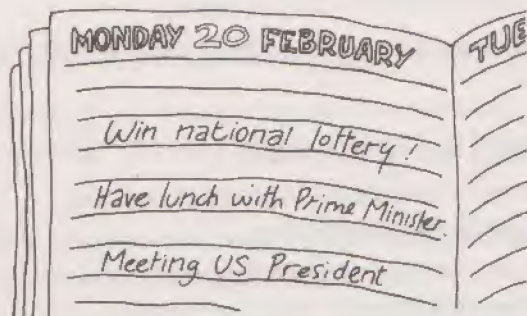 MONDAY 20 FEBRUARY
Win national lottery!
Have lunch with Prime Minister.
Meeting US President
TUE